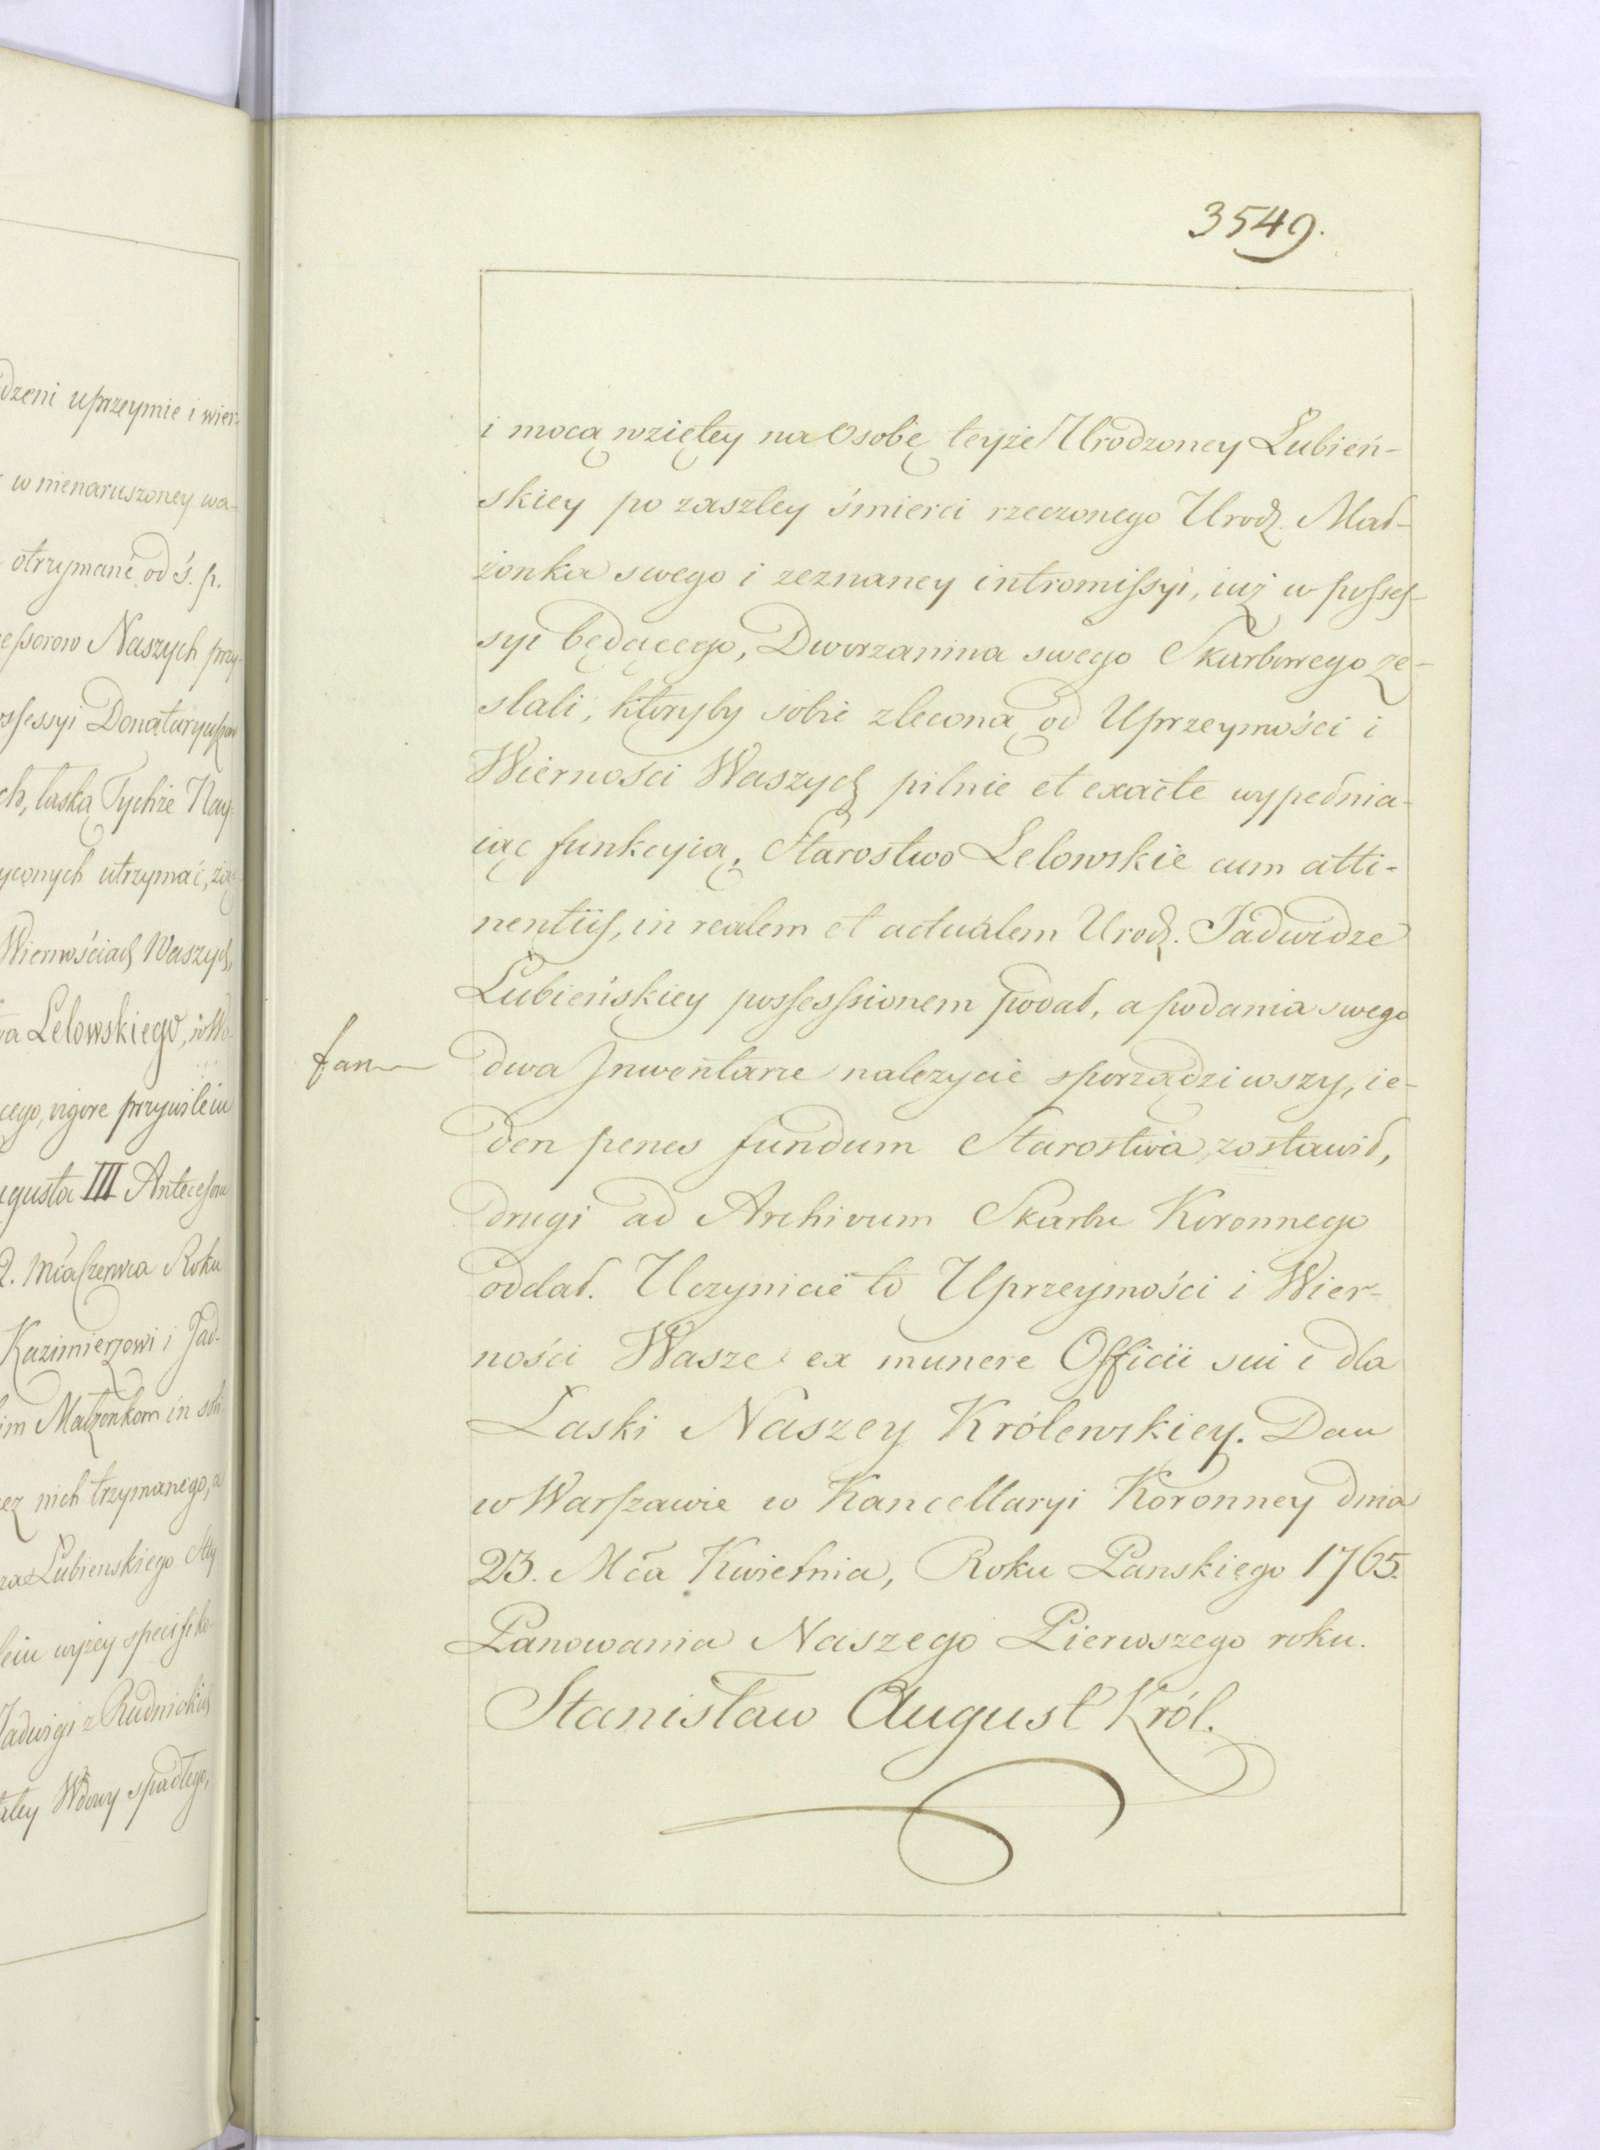 dzeni uprzeymie i wier-
w nienaruszoney wa-
otrzymane od ś. p.
essorow Naszych przy-
ossessyi Donataryuszow
ch, łaską Tychże Nay-
yconych utrzymać, za-
Wiernościach Waszych,
wa Lelowskiego, w Wo-
cego, vigore przywileiu
ugusta III Antecessora
2. Mca Czerwca Roku
Kazimierzowi i Jad-
im Małżonkom in soli-
ez nich trzymanego, a
rza Łubienskiego
leiu wyżey specifiko-
Jadwigi z Rudnickich
ałey Wdowy spadłego,
3549.
i mocą wziętey na Osobę teyże Urodzoney Łubień-
skiey po zaszłey śmierci rzeczonego Urodz. Mał-
żonka swego i zeznaney intromissyi, iuż w posses-
syi będącego, Dworzanina swego Skarbowego ze-
słali, któryby sobie zleconą od Uprzeymości i
Wierności Waszych pilnie et exacte wypełnia-
iąc funkcyią, Starostwo Lelowskie cum atti-
nentiis, in realem et actualem Urodz. Jadwidze
Łubieńskiey possessionem podał, a podania swego
fan
dwa Jnwentarze należycie sporządziwszy, ie-
den penes fundum Starostwa zostawił,
drugi ad Archivum Skarbu Koronnego
oddał. Uczynicie to Uprzeymości i Wier-
ności Wasze ex munere Officii sui i dla
Łaski Naszey Królewskiey. Dan
w Warszawie w Kancellaryi Koronney dnia
23. Mca Kwietnia, Roku Panskiego 1765.
Panowania Naszego Pierwszego roku.
Stanisław August Król.